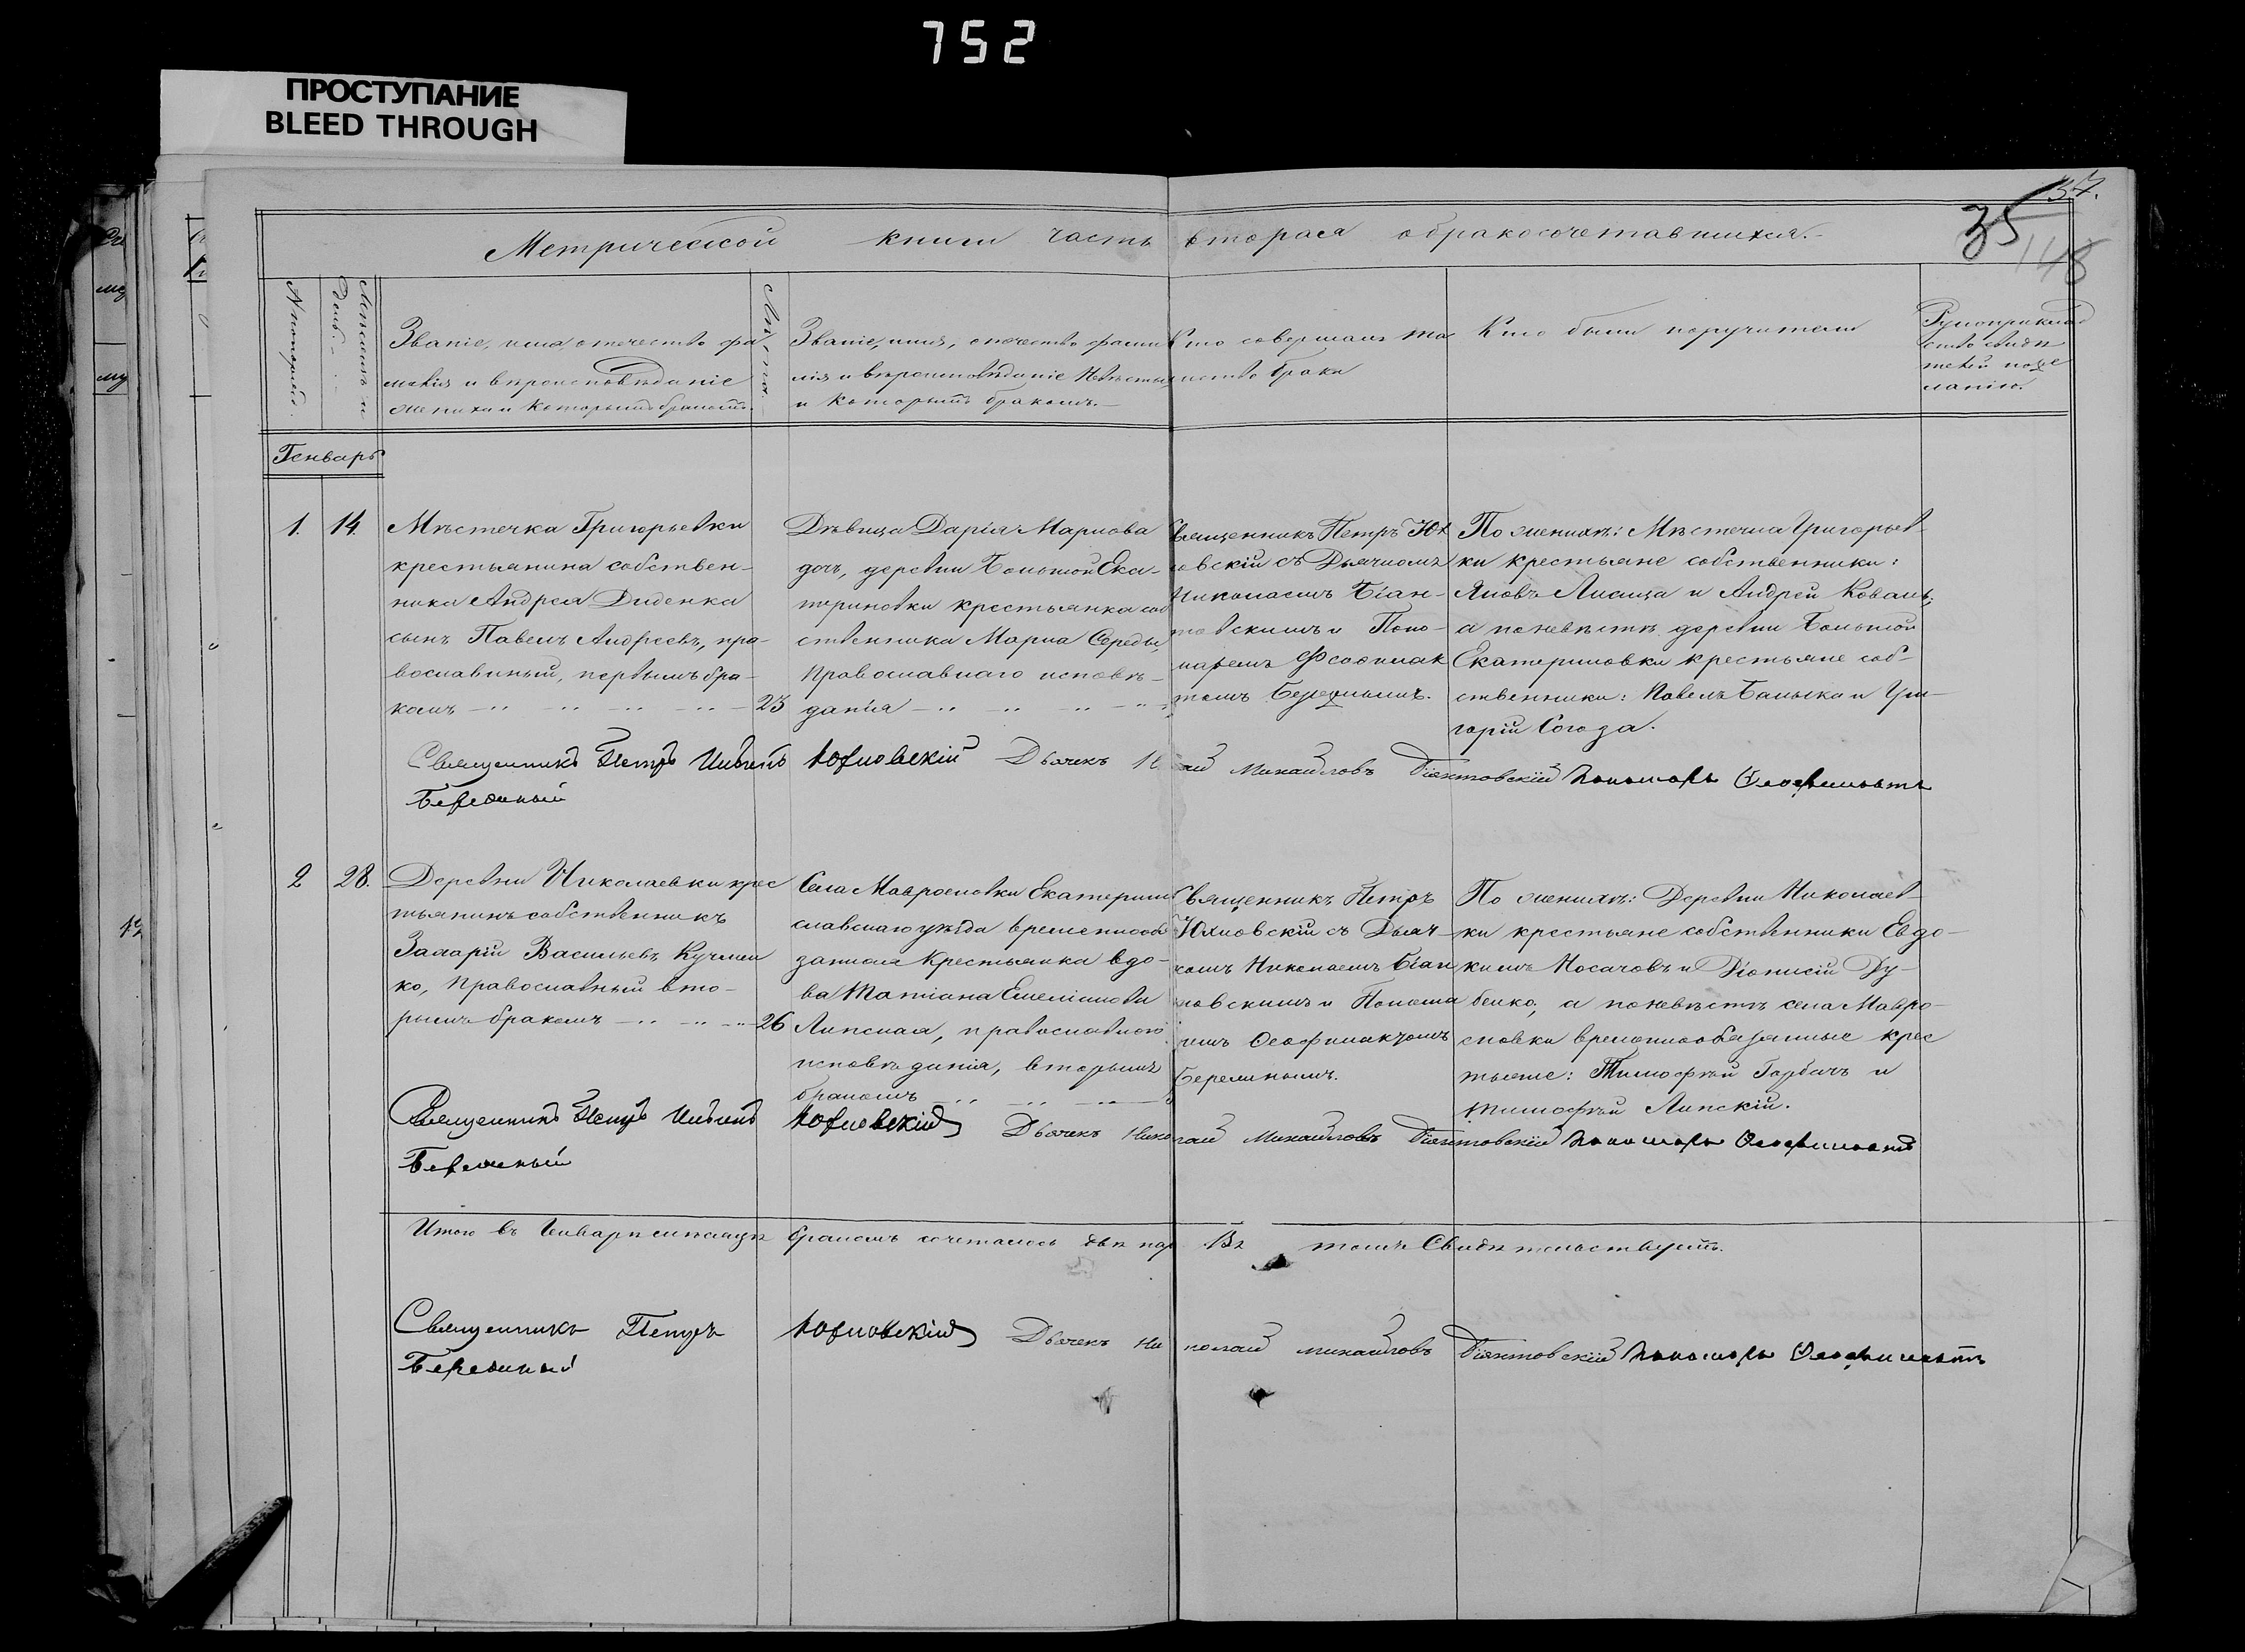 752
ПРОСТУПАНИЕ
BLEED THROUGH
37.
35
148
Метрической книги часть вторая о бракосочетавшихся.
№ по порядк.
Мѣсяцъ и
день.
Званіе, имя, отечество фа
милія и вѣроисповѣданіе
жениха и которымъ бракомъ.
Лѣта.
Званіе, имя, отечество фами
лія и вѣроисповѣданіе невѣсты
и которымъ бракомъ.
Кто совершалъ та
инство брака
Кто были поручители
Рукоприклад
ство свидѣ
телей по же
ланію.
Генварь
1. 14.
Мѣстечка Григорьевки
крестьянина собствен-
ника Андрея Диденка
сынъ Павелъ Андреевъ, пра-
вославный, первымъ бра-
комъ
23
Дѣвица Дарія Маркова
дочь, деревни Большой Ека-
териновки крестьянка соб
ственника Марка Середы,
Православнаго исповѣ-
данія
Священникъ Петръ Юх
новскій съ Дьячкомъ
Николаемъ Біан-
товскимъ и Поно-
маремъ Ѳеофилак
томъ Бережнымъ.
По женихѣ: Мѣстечка Григорьев-
ки крестьяне собственники:
Яковъ Лисица и Андрей Коваль;
а по невѣстѣ деревни Большой
Екатериновки крестьяне соб-
ственники: Павелъ Балыка и Гри-
горій Согоза.
Священникъ Петръ Юхновскій Дьячекъ Николай Михайловъ Біянтовскій Пономарь Ѳеофилактъ
Бережный
2 28.
Деревни Николаевки крес
тьянинъ собственникъ
Захарій Васильевъ Кучмен
ко, Православный вто-
рымъ бракомъ
26
Села Мавроеловки Екатерино
славскаго уѣзда временнооб
язаная Крестьянка вдо-
ва Татіана Емеліанова
Липская, православного
исповѣданія, вторымъ
бракомъ
Священникъ Петръ
Юхновскій съ Дьяч-
комъ Николаемъ Біан
товскимъ и Понома
ремъ Ѳеофилактомъ
Бережнымъ.
По женихѣ: Деревни Николаев-
ки крестьяне собственники Евдо-
кимъ Носачовъ и Діонисій Ду-
бенко, а по невѣстѣ села Мавро-
еловки временнообязанные крес
тьяне: Тимофѣй Горбачъ и
Тимофѣй Липскій.
Священникъ Петръ Юхновскій Дьячекъ Николай Михайловъ Біянтовскій Пономарь Ѳеофилактъ
Бережный
Итого въ Генварѣ мѣсяцѣ бракомъ сочеталось двѣ пары Въ томъ Свидѣтельствуютъ.
Священникъ Петръ Юхновскій Дьячекъ Николай Михайловъ Біянтовскій Пономарь Ѳеофилактъ
Бережный